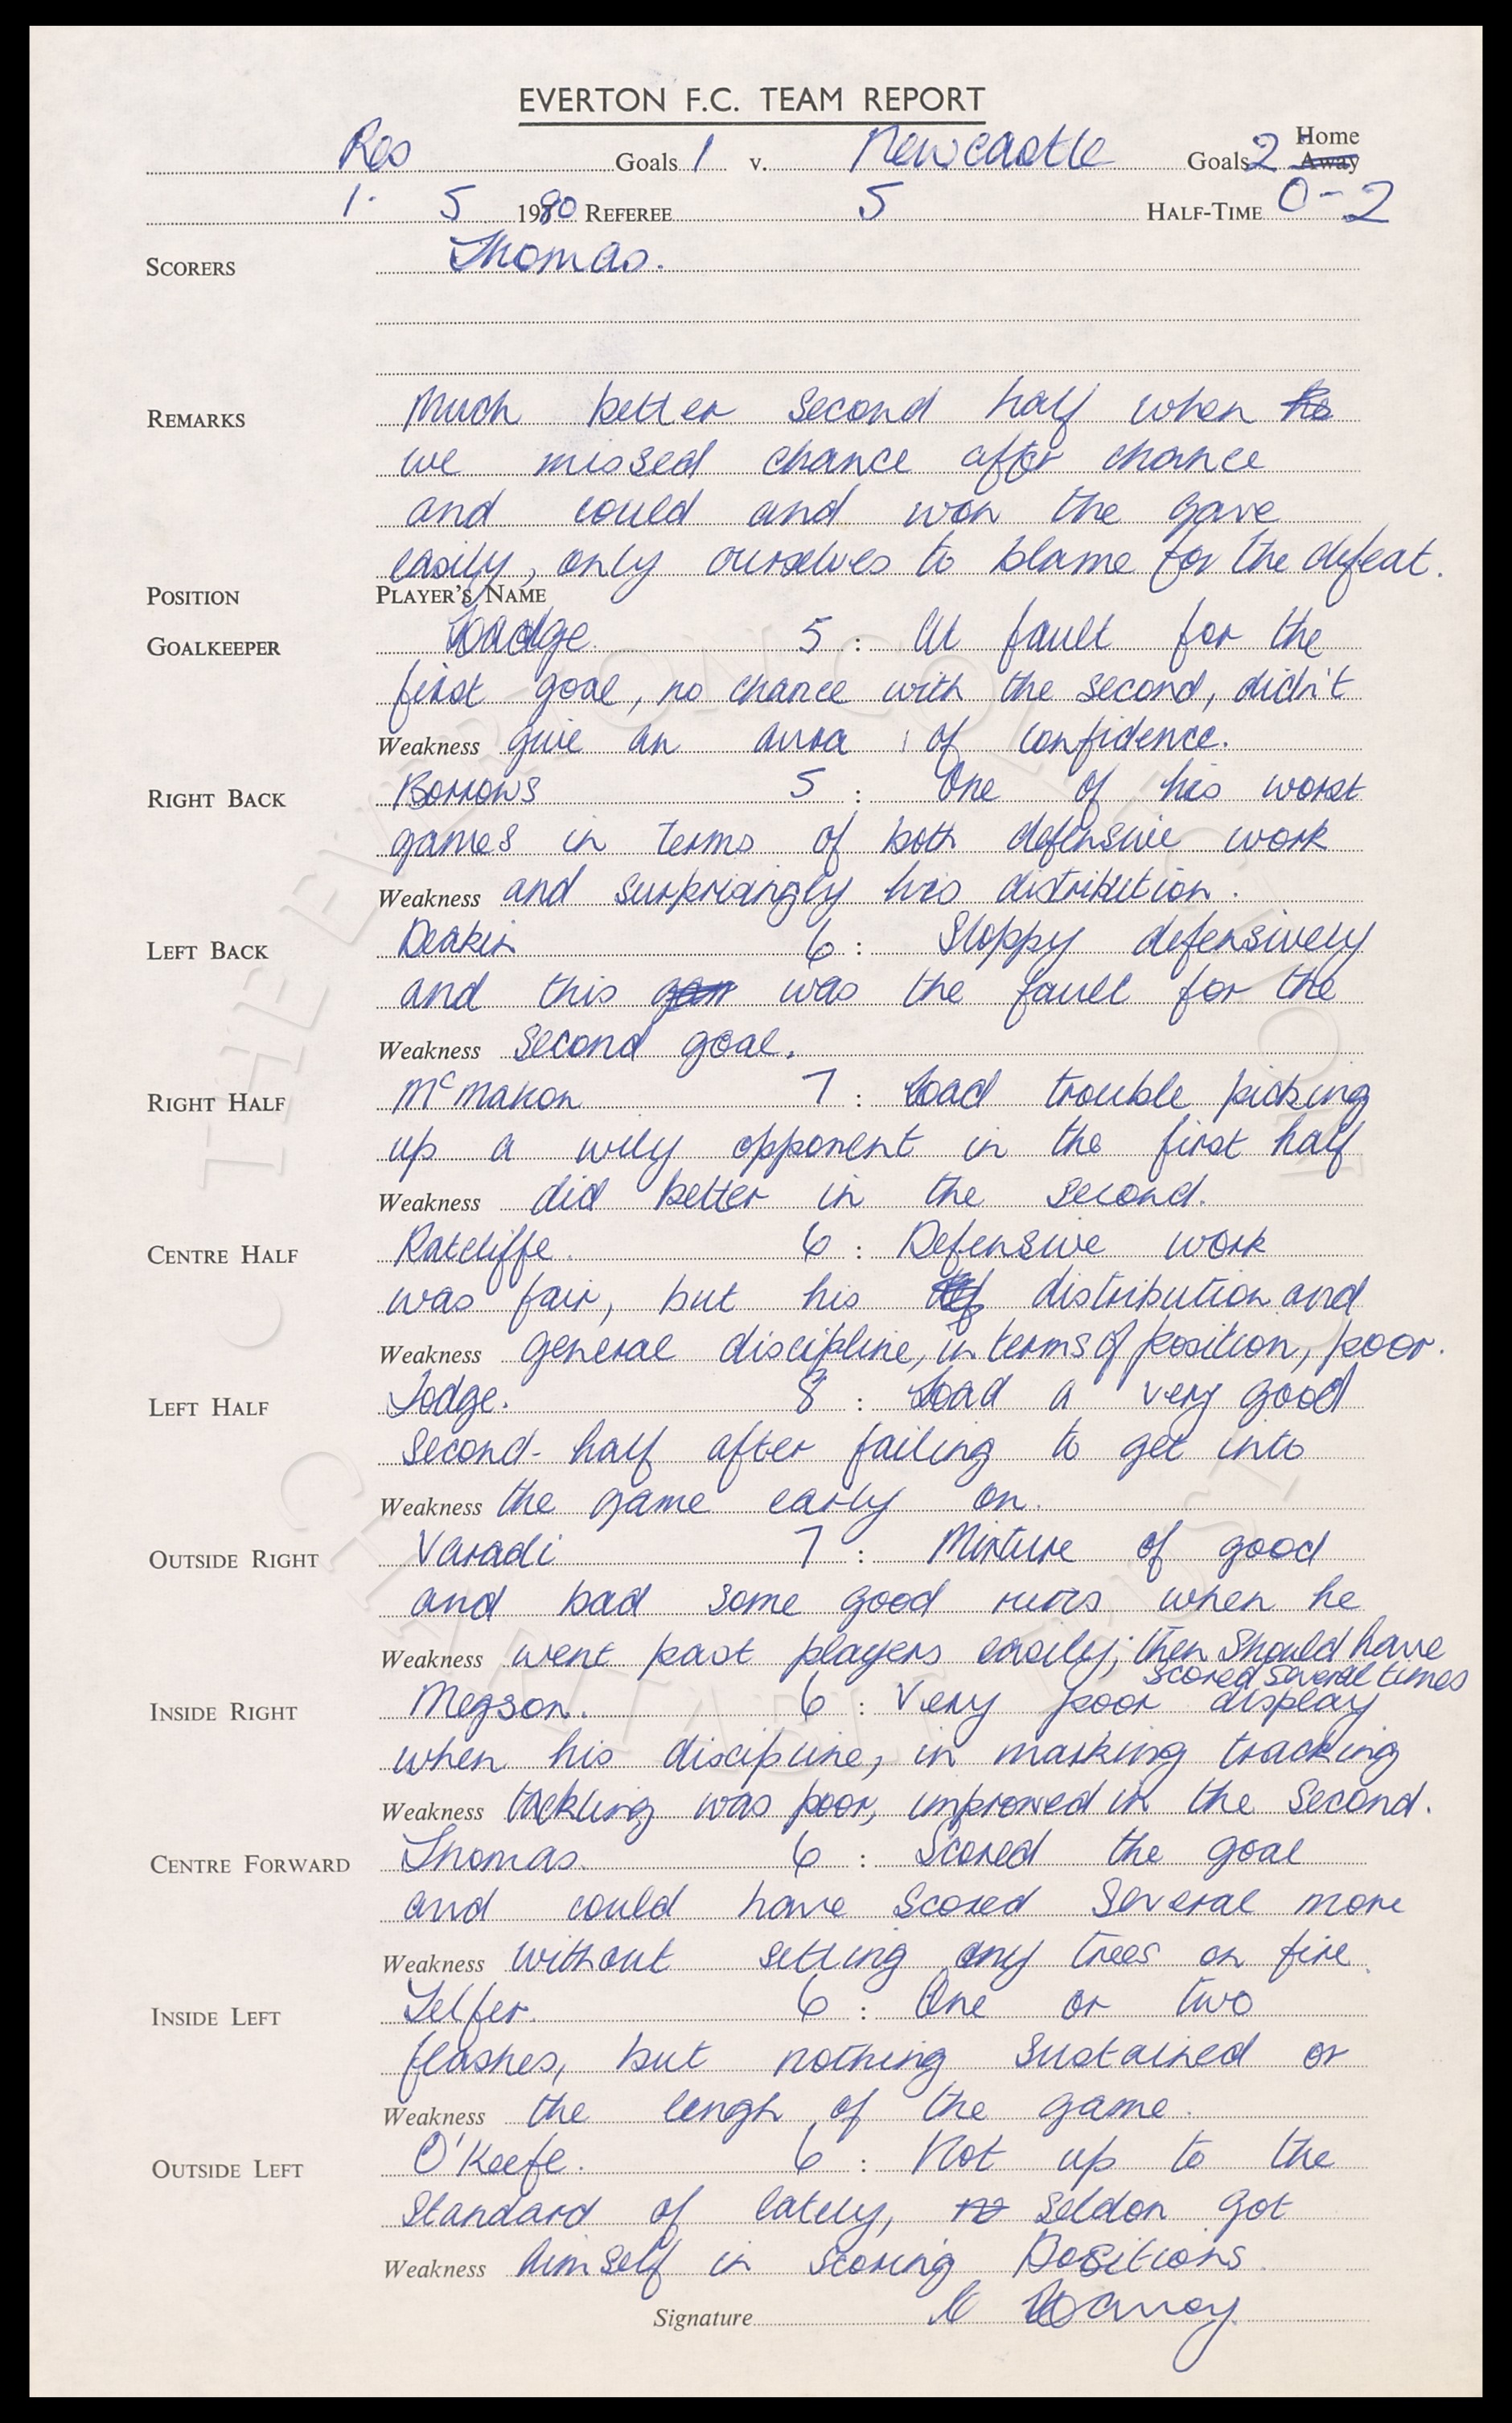 EVERTON F.C. TEAM REPORT
Res Goals 1 v. Newcastle Goals 2 Home Away
1. 5 1980 REFEREE 5 HALF-TIME 0-2
SCORERS Thomas.
REMARKS Much better second half when
we missed chance after chance
and could and won the gave
easily, only ourselves to blame for the defeat.
POSITION PLAYER'S NAME
GOALKEEPER Hodge 5 : At fault for the
first goal, no chance with the second, didn't
Weakness give an aura of confidence.
RIGHT BACK Borrows 5 : One of his worst
games in terms of both defensive work
Weakness and surprisingly his distribution.
LEFT BACK Deakin 6 : Sloppy defensively
and this was the fault for the
Weakness second goal.
RIGHT HALF McMahon 7 : Had trouble picking
up a wily opponent in the first half
Weakness did better in the second.
CENTRE HALF Ratcliffe 6 : Defensive work
was fair, but his distribution and
Weakness general discipline, in terms of position, poor.
LEFT HALF Lodge. 8 : Had a very good
second-half after failing to get into
Weakness the game early on.
OUTSIDE RIGHT Varadi 7 : Mixture of good
and bad some good runs when he
Weakness went past players easily; then should have
scored several times
INSIDE RIGHT Megson. 6 : Very poor display
when his discipline, in marking tracking
Weakness tackling was poor, improved in the second.
CENTRE FORWARD Thomas. 6 : Scored the goal
and could have scored several more
Weakness without setting any trees on fire.
INSIDE LEFT Telfer. 6 : One or two
flashes, but nothing sustained or
Weakness the lengh of the game.
OUTSIDE LEFT O'Keefe. 6 : Not up to the
standard of lately, seldon got
Weakness himself in scoring positions.
Signature C Harvey
THE EVERTON COLLECTION
CHARITABLE TRUST